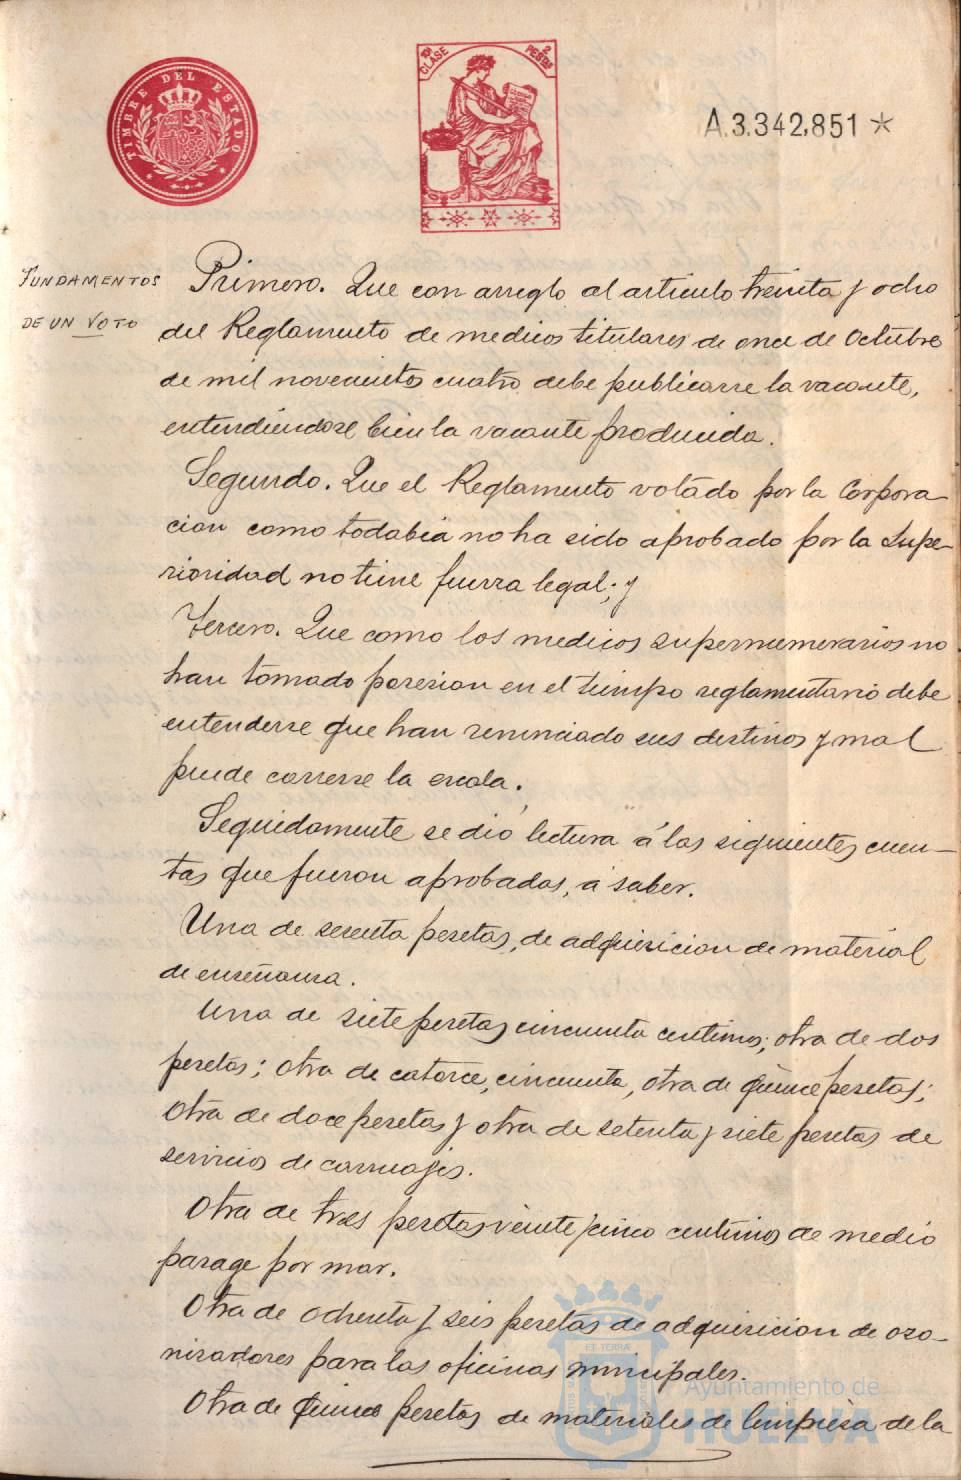 TIMBRE DEL ESTADO
10ª CLASE 2 PESETAS
A.3.342,851 *
FUNDAMENTOS
DE UN VOTO
Primero. Que con arreglo al articulo treinta y ocho
del Reglamento de medicos titulares de once de Octubre
de mil novecientos cuatro debe publicarse la vacante,
entendiéndose bien la vacante producida.
Segundo. Que el Reglamento votado por la Corpora-
cion como todabia no ha sido aprobado por la Supe-
rioridad no tiene fuerza legal; y
Tercero. Que como los medicos supernumerarios no
han tomado posesion en el tiempo reglamentario debe
entenderse que han renunciado sus destinos y mal
puede correrse la escala.
Seguidamente se dió lectura á las siguientes cuen-
tas que fueron aprobadas, á saber.
Una de sesenta pesetas, de adquisicion de material
de enseñanza.
Una de siete pesetas cincuenta centimos; otra de dos
pesetas; otra de catorce, cincuenta, otra de quince pesetas;
otra de doce pesetas y otra de setenta y siete pesetas de
servicios de carruajes.
Otra de tres pesetas veinte y cinco centimos de medio
parage por mar.
Otra de ochenta y seis pesetas de adquisicion de ozo-
nizadores para las oficinas municipales.
Otra de quince pesetas de materiales de limpieza de la
Ayuntamiento de
HUELVA